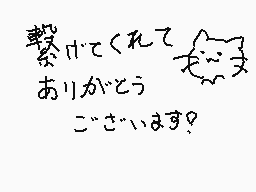 繋げてくれて
ありがとう
ございます!